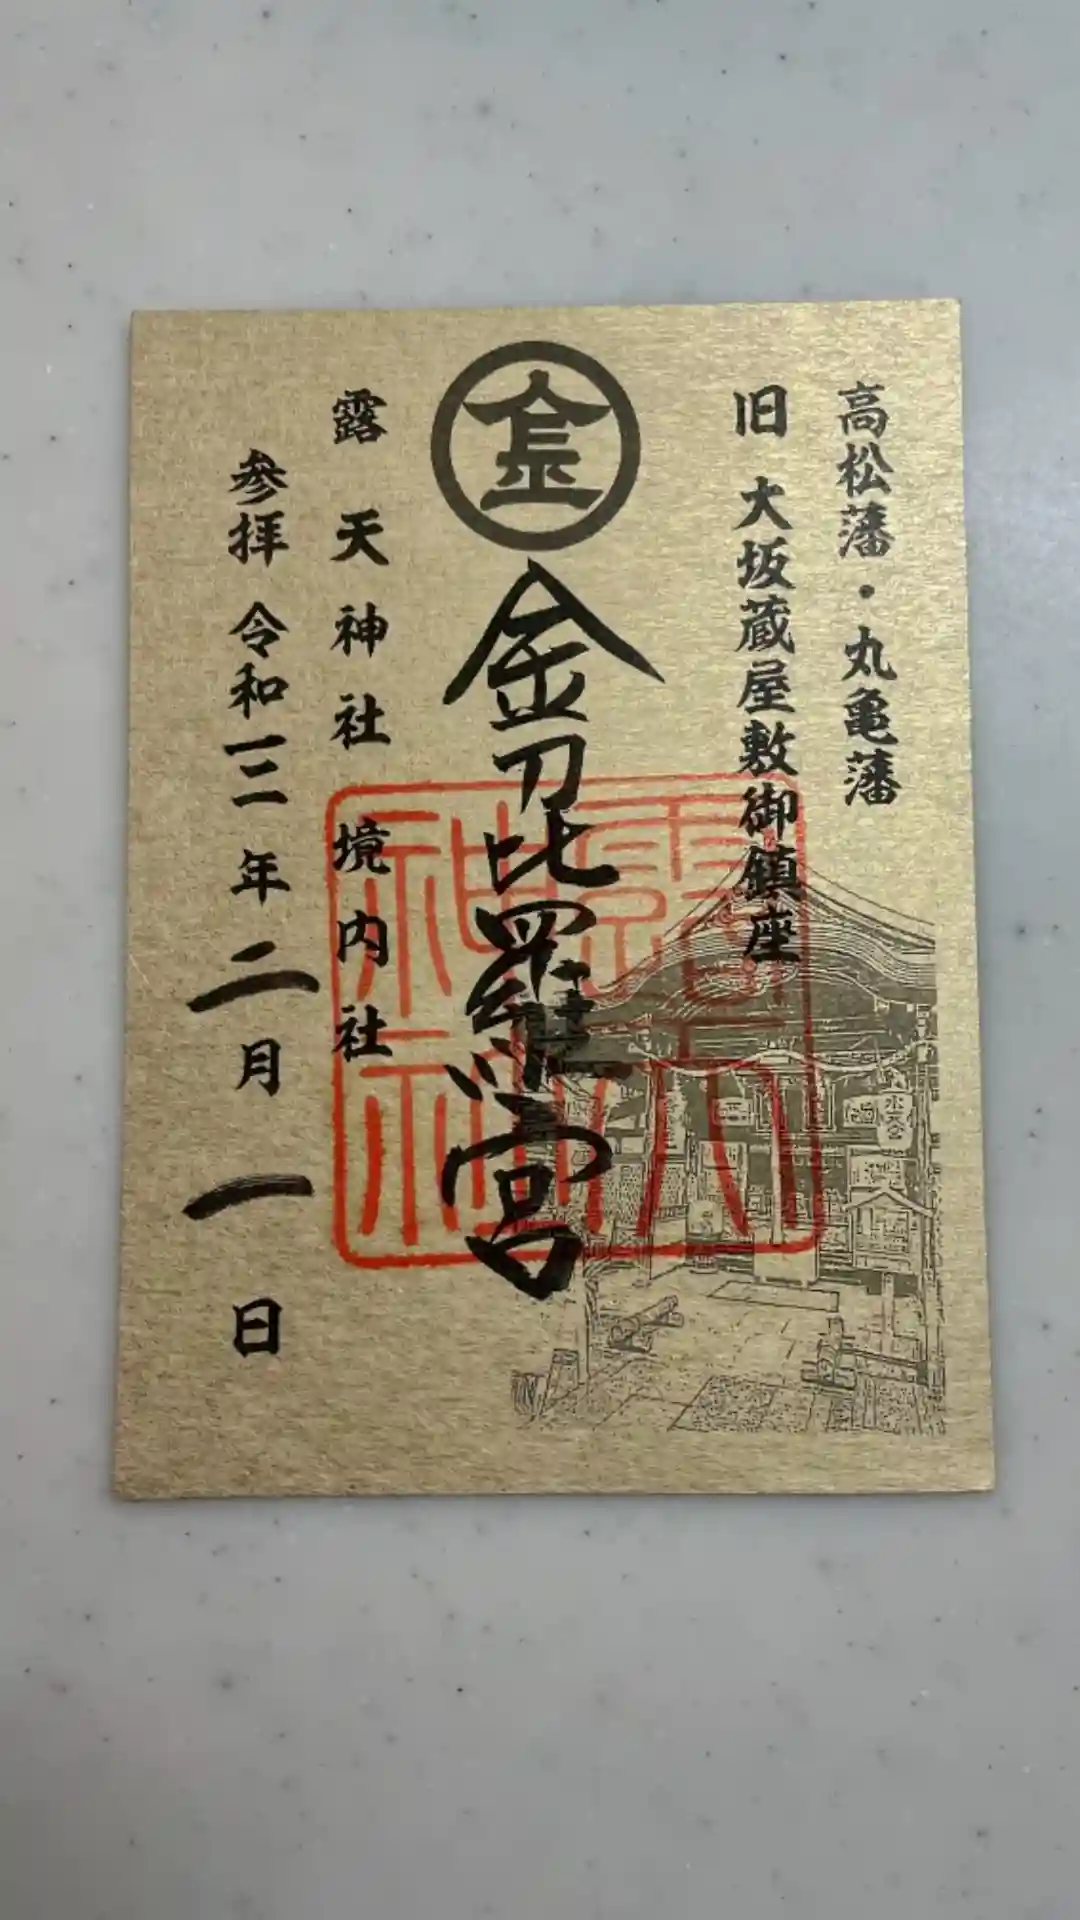 高松藩・丸亀藩
旧 大坂蔵屋敷御鎮座
金
金刀比羅宮
露天神社境内社
参拝 令和三年二月一日
水天宮